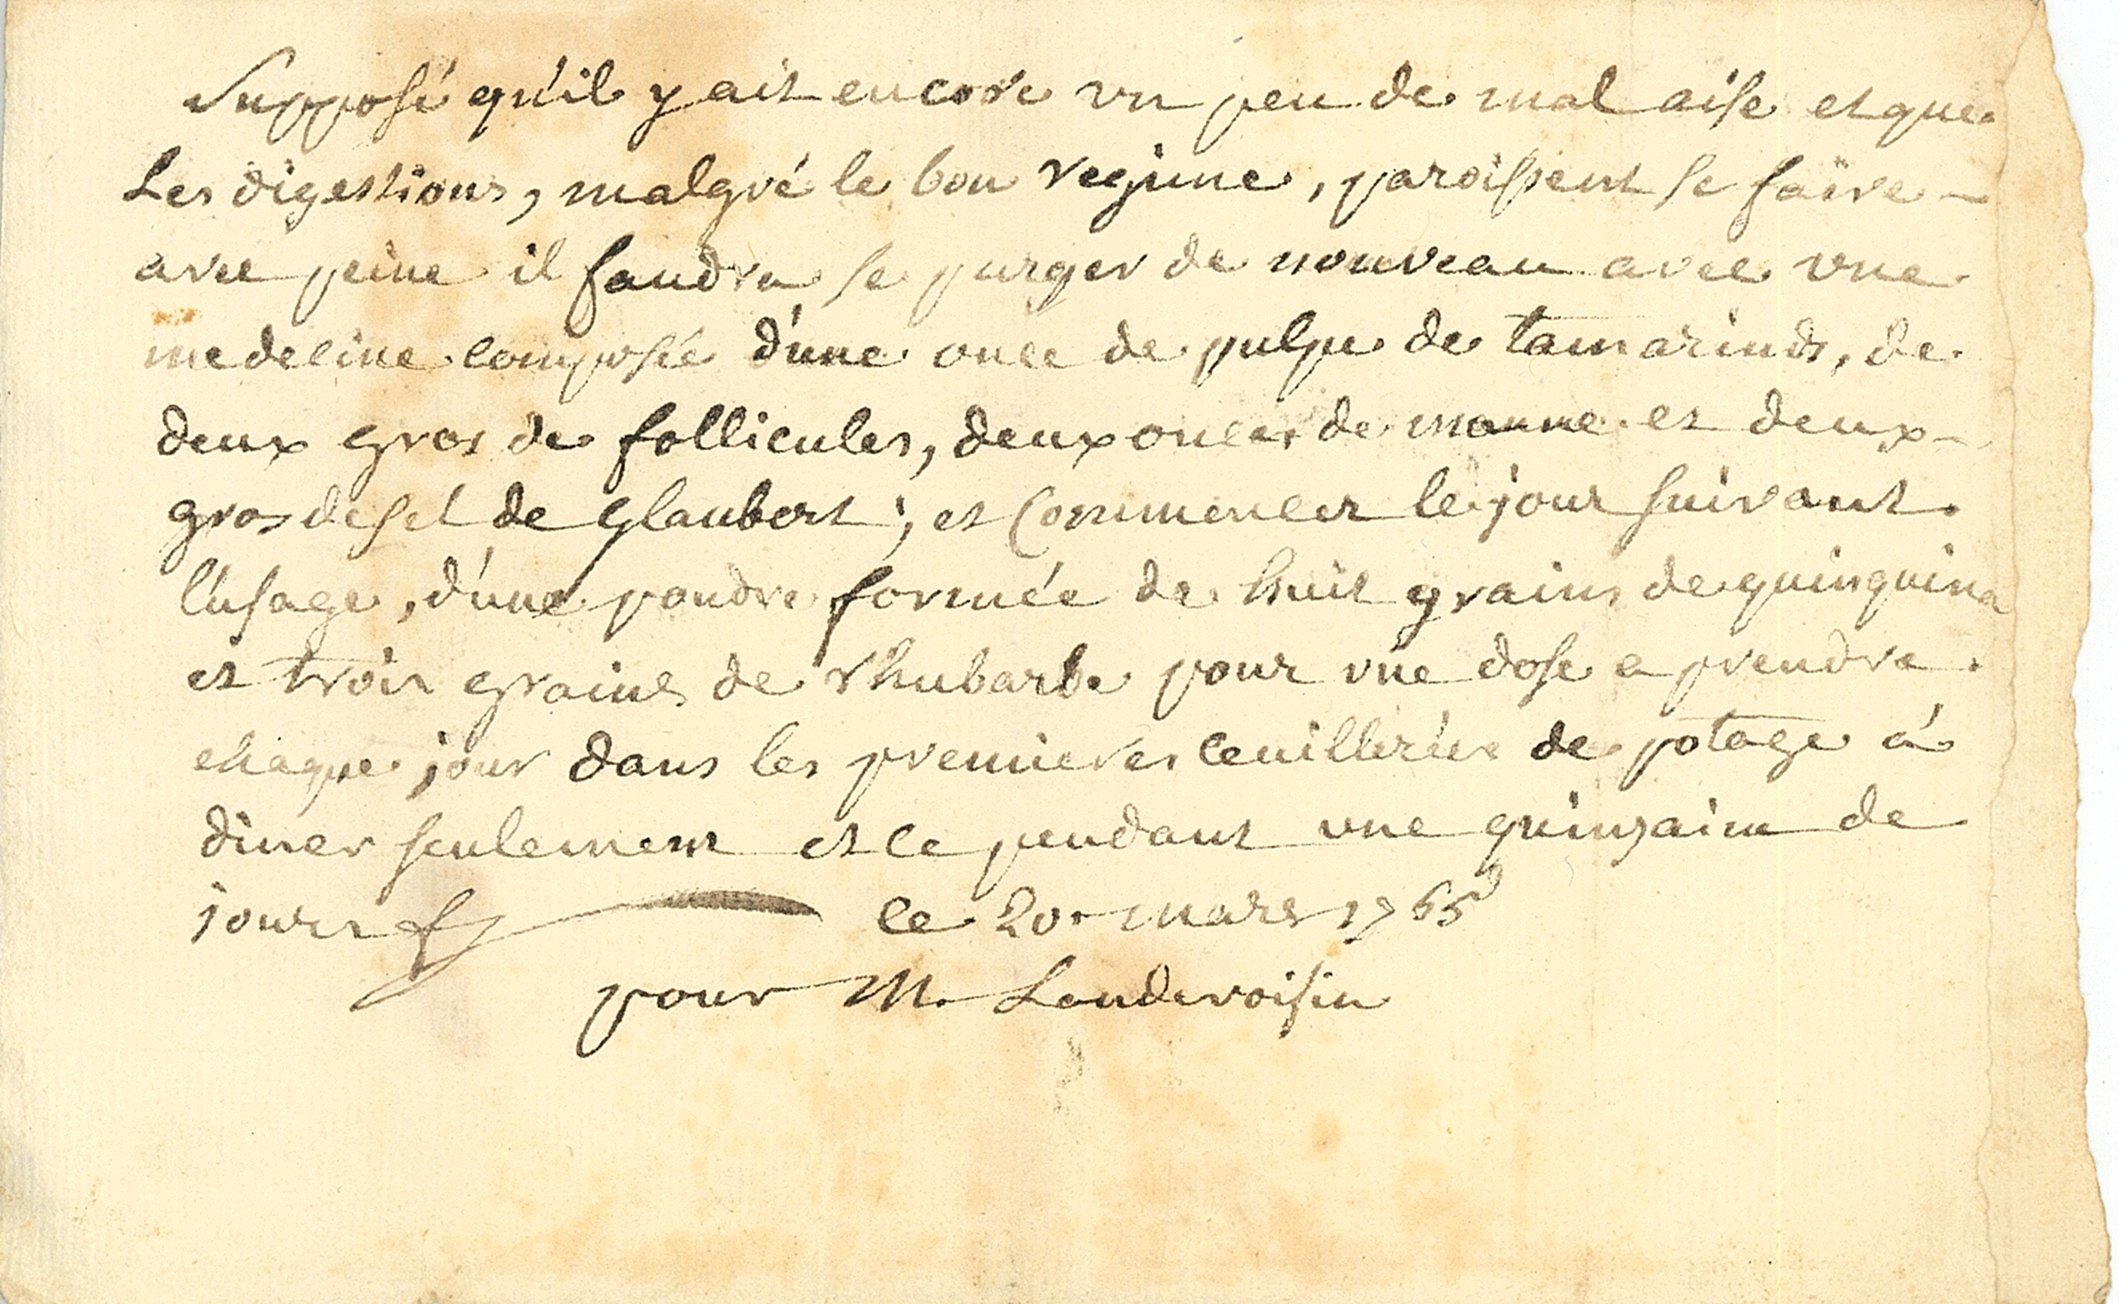 Supposé qu'il y ait encore un peu de mal aise et que
Les digestions, malgré le bon regime, paroissent se faire
avec peine il faudra se purger de nouveau avec une
medecine composée d'une once de pulpe de tamarinds, de
deux gros de follicules, deux onces de manne et deux
gros de sel de glaubert; et Commencer le jour suivant
l'usage, d'une poudre formée de huit grains de quinquina
et trois grains de rhubarbe pour une dose a prendre
chaque jour dans les premieres ceuillerées de potage à
diner seulement et ce pendant une quinzaine de
jours le 20. mars 1765
pour M. Landivoisin